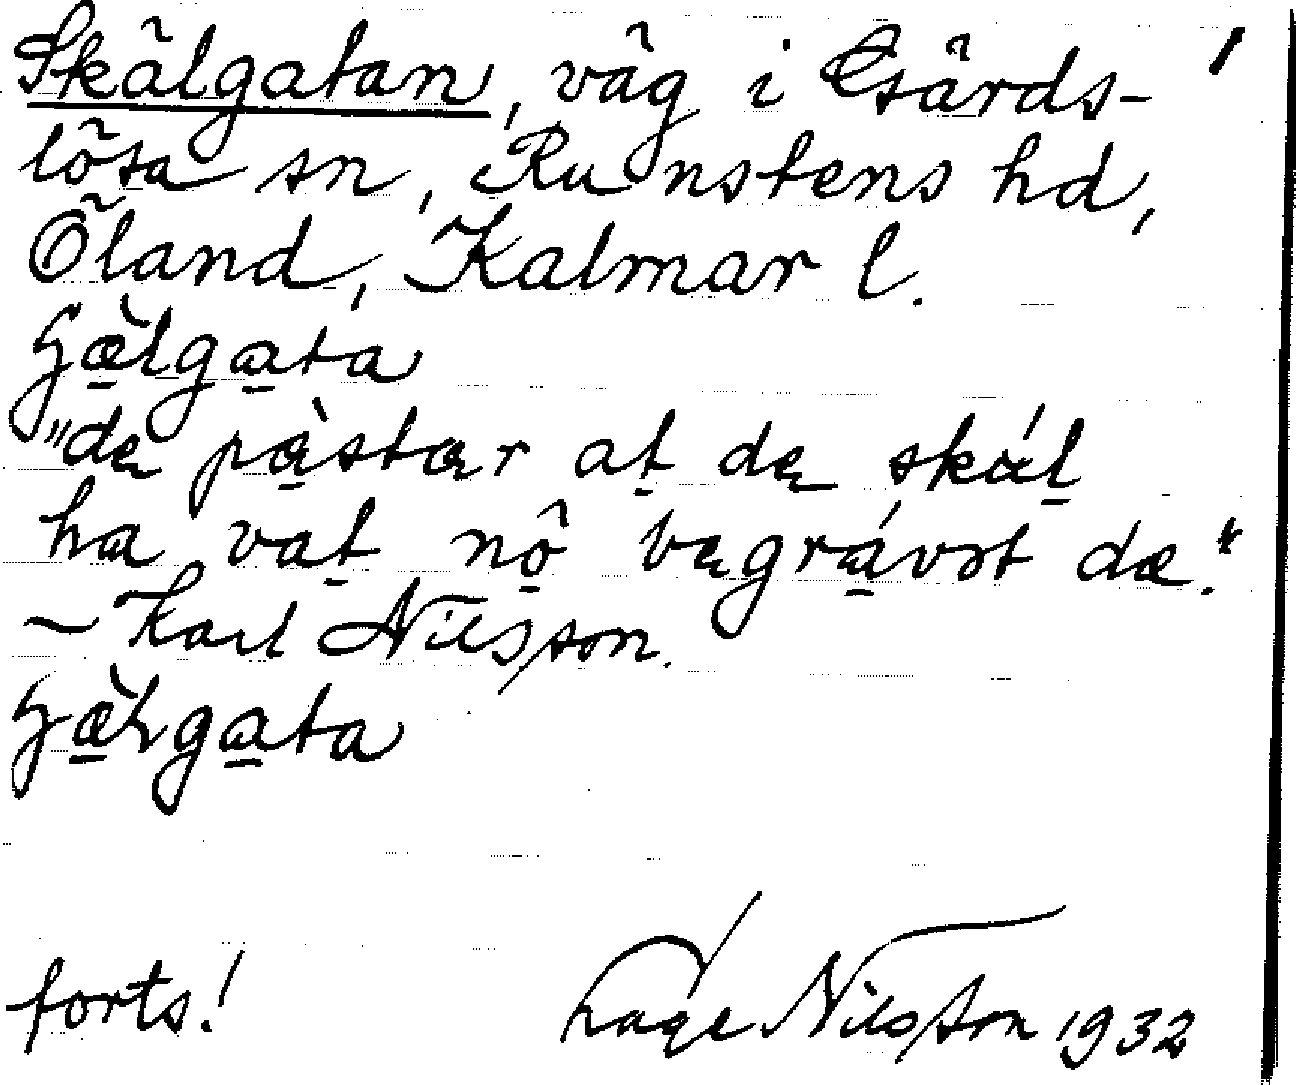 Skälgatan, väg i Gärds-
lösa sn, Runstens hd,
Öland, Kalmar l.
ʃæ̀lgata
"dę pàstær at dę skǽl
ha vat nô bęgrávət dæ."
~ Karl Nilsson.
ʃæ̀lgata
forts! Lage Nilsson 1932